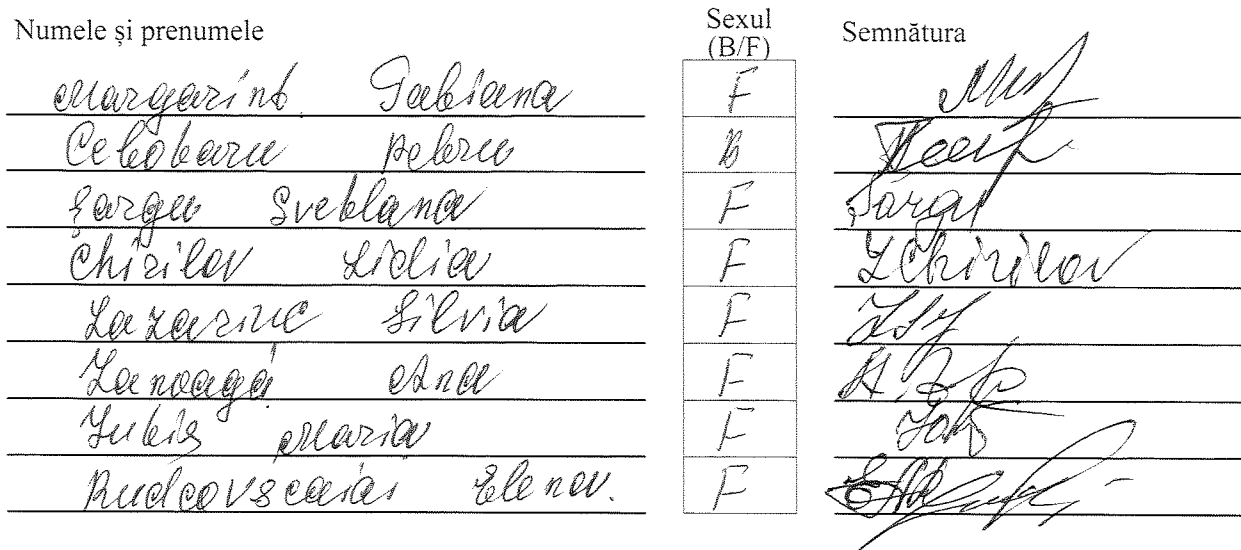 Numele și prenumele Sexul (B/F) Semnătura
Margarint Tatiana F
Cebotaru Petru B
Sârgu Svetlana F Sârgu
Chirilov Lidia F LChirilov
Lazariuc Silvia F
Zanoagă Ana F
Maria F
Rudcovscaia Elena. F